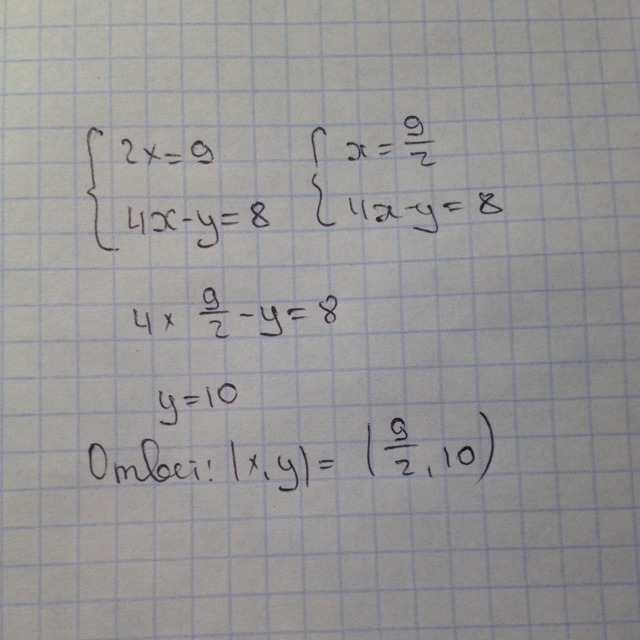 { 2x = 9 { x = 9/2
4x - y = 8 4x - y = 8
4 × 9/2 - y = 8
y = 10
Ответ: (x, y) = (9/2, 10)